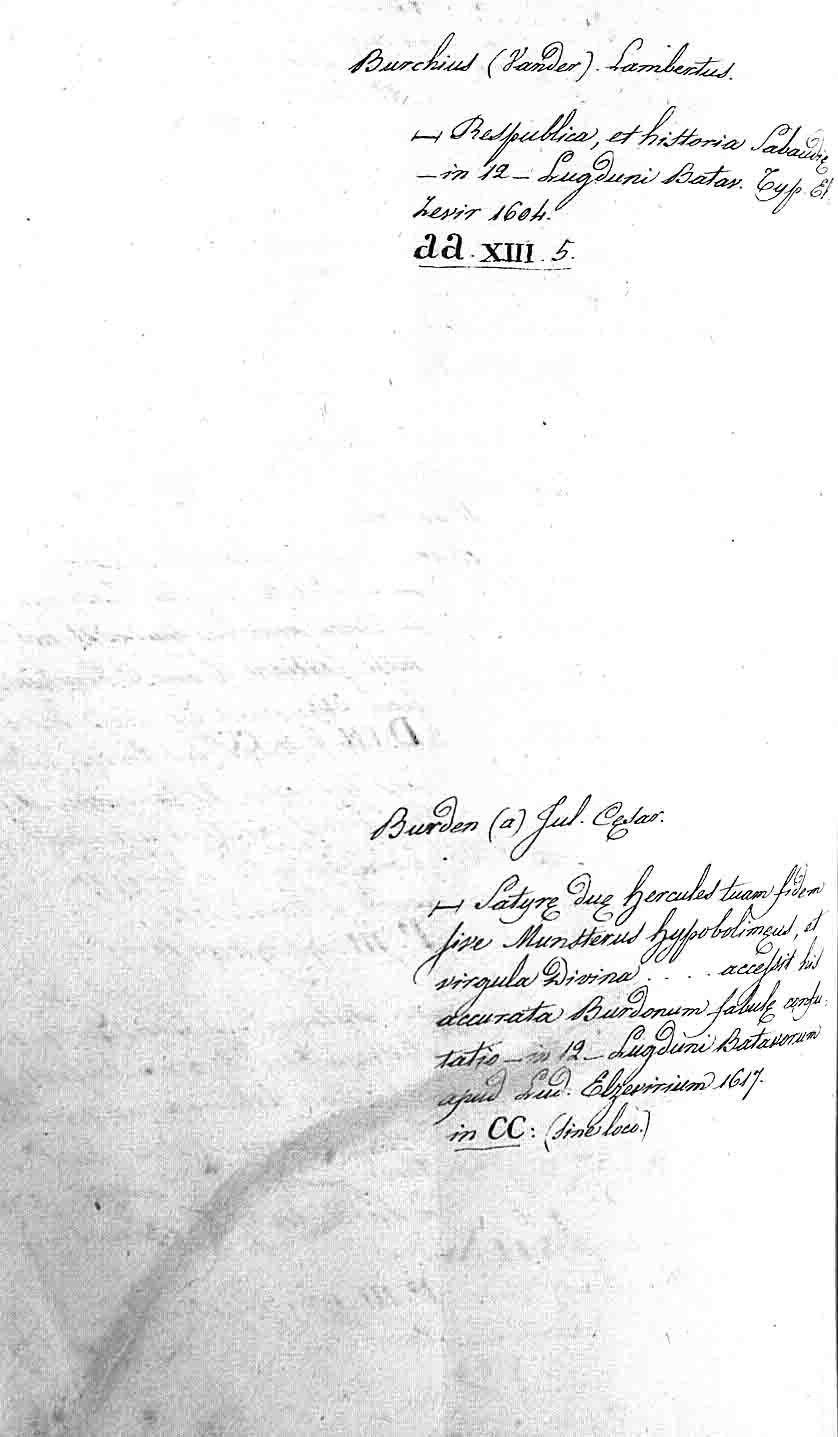 Burchius (Vander). Lambertus.
— Respublica, et historia Sabaudię
— in 12 — Lugduni Batav. Typ. El
zevir 1604.
aa. XIII. 5.
Burden (a) Jul. Cęsar.
— Satyrę duę Hercules tuam fidem
sive Munsterus hypobolimęus, et
virgula Divina . . . . . accessit his
accurata Burdonum fabulę confu:
tatio — in 12 — Lugduni Batavorum
apud Lud. Elzevirium 1617.
in CC: (sine loco.)